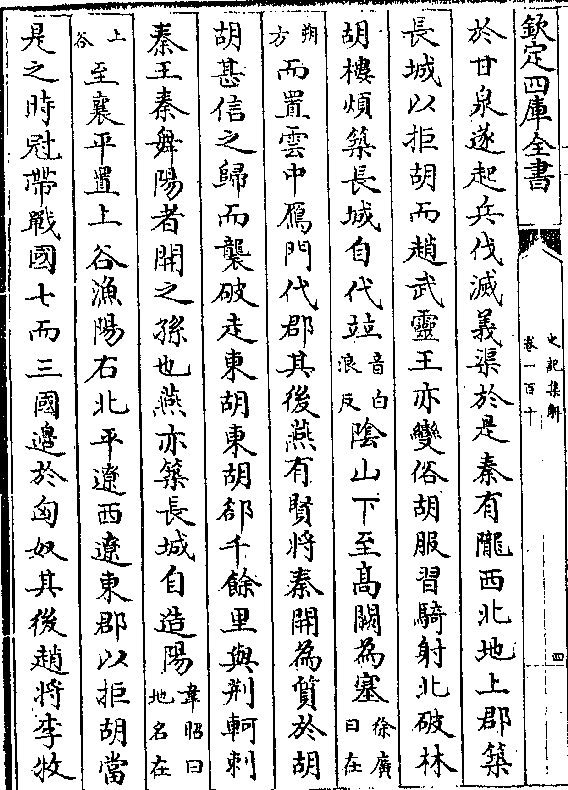 欽定四庫全書
史記集解
卷一百十
四
於甘泉遂起兵伐滅義渠於是秦有隴西北地上郡築
長城以拒胡而趙武靈王亦變俗胡服習騎射北破林
胡樓煩築長城自代並音白浪反陰山下至高闕為塞徐廣曰在
朔方而置雲中鴈門代郡其後燕有賢將秦開為質於胡
胡甚信之歸而襲破走東胡東胡郤千餘里與荆軻刺
秦王秦舞陽者開之孫也燕亦築長城自造陽韋昭曰地名在
上谷至襄平置上谷漁陽右北平遼西遼東郡以拒胡當
是之時冠帶戰國七而三國邊於匈奴其後趙將李牧